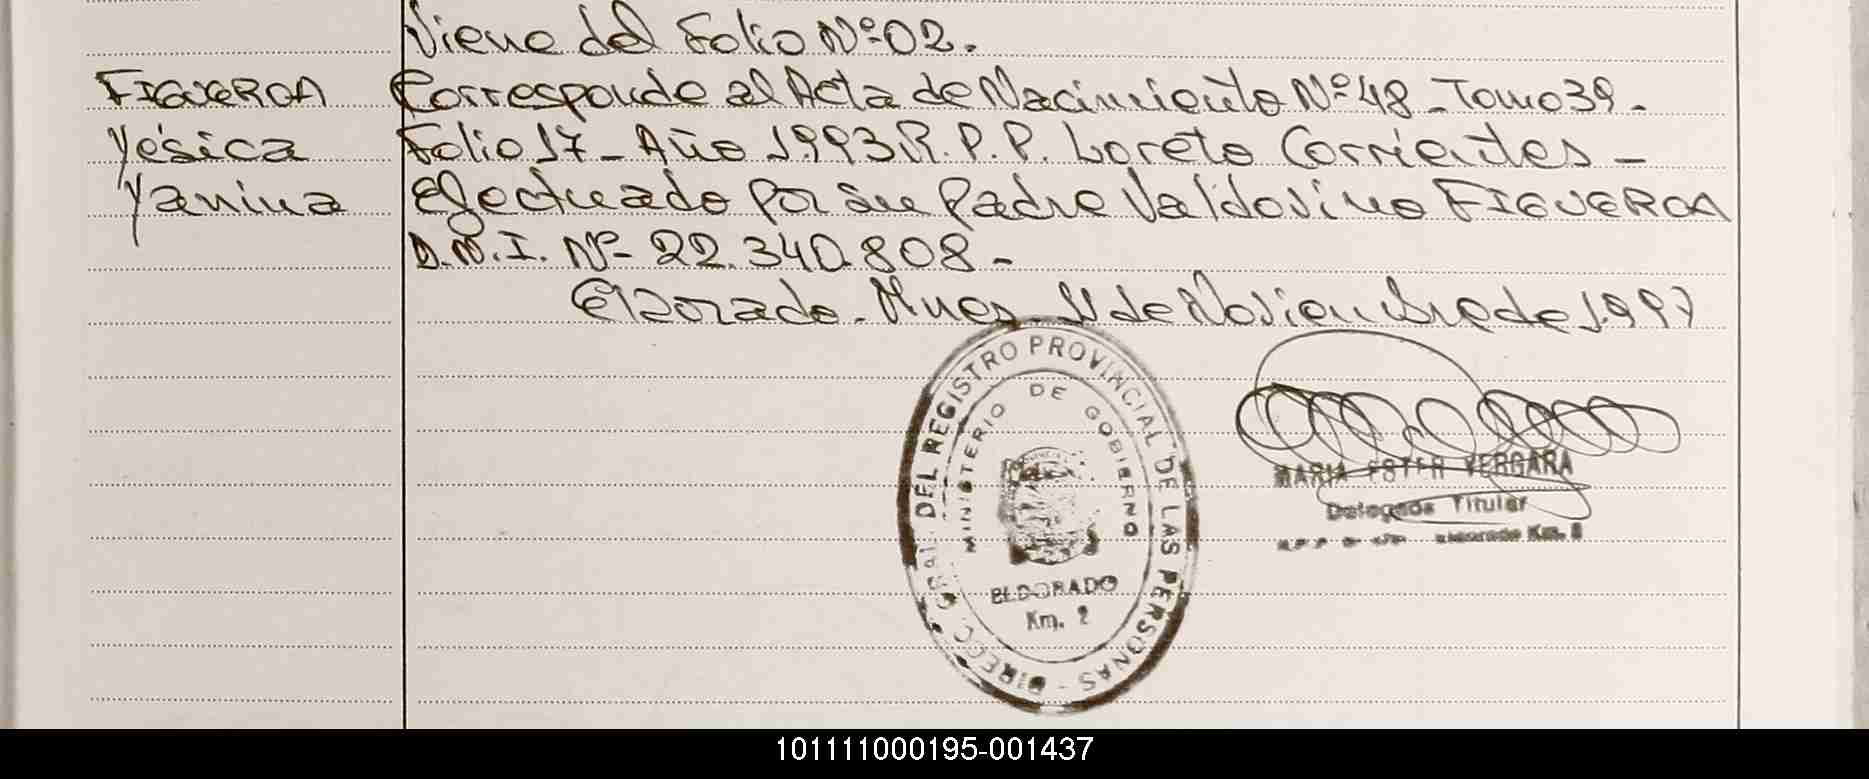 Viene del Folio Nº 02.
FIGUEROA Corresponde al Acta de Nacimiento Nº 48 - Tomo 39 -
Yésica Folio 17 - Año 1.993 R.P.P. Loreto Corrientes -
Yanina efectuado por su padre Valdovino FIGUEROA
D.N.I. Nº 22.340.808 -
Eldorado - Mnes, 11 de Noviembre de 1.997
DIRECC. GRAL. DEL REGISTRO PROVINCIAL DE LAS PERSONAS -
MINISTERIO DE GOBIERNO
ELDORADO
Km. 2
MARIA ESTER VERGARA
Delegada Titular
Eldorado Km. 2
101111000195-001437